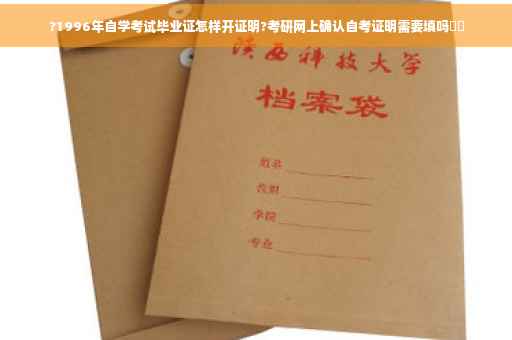 ?1996年自学考试毕业证怎样开证明?考研网上确认自考证明需要填吗
陕西科技大学
档案袋
学院
专业